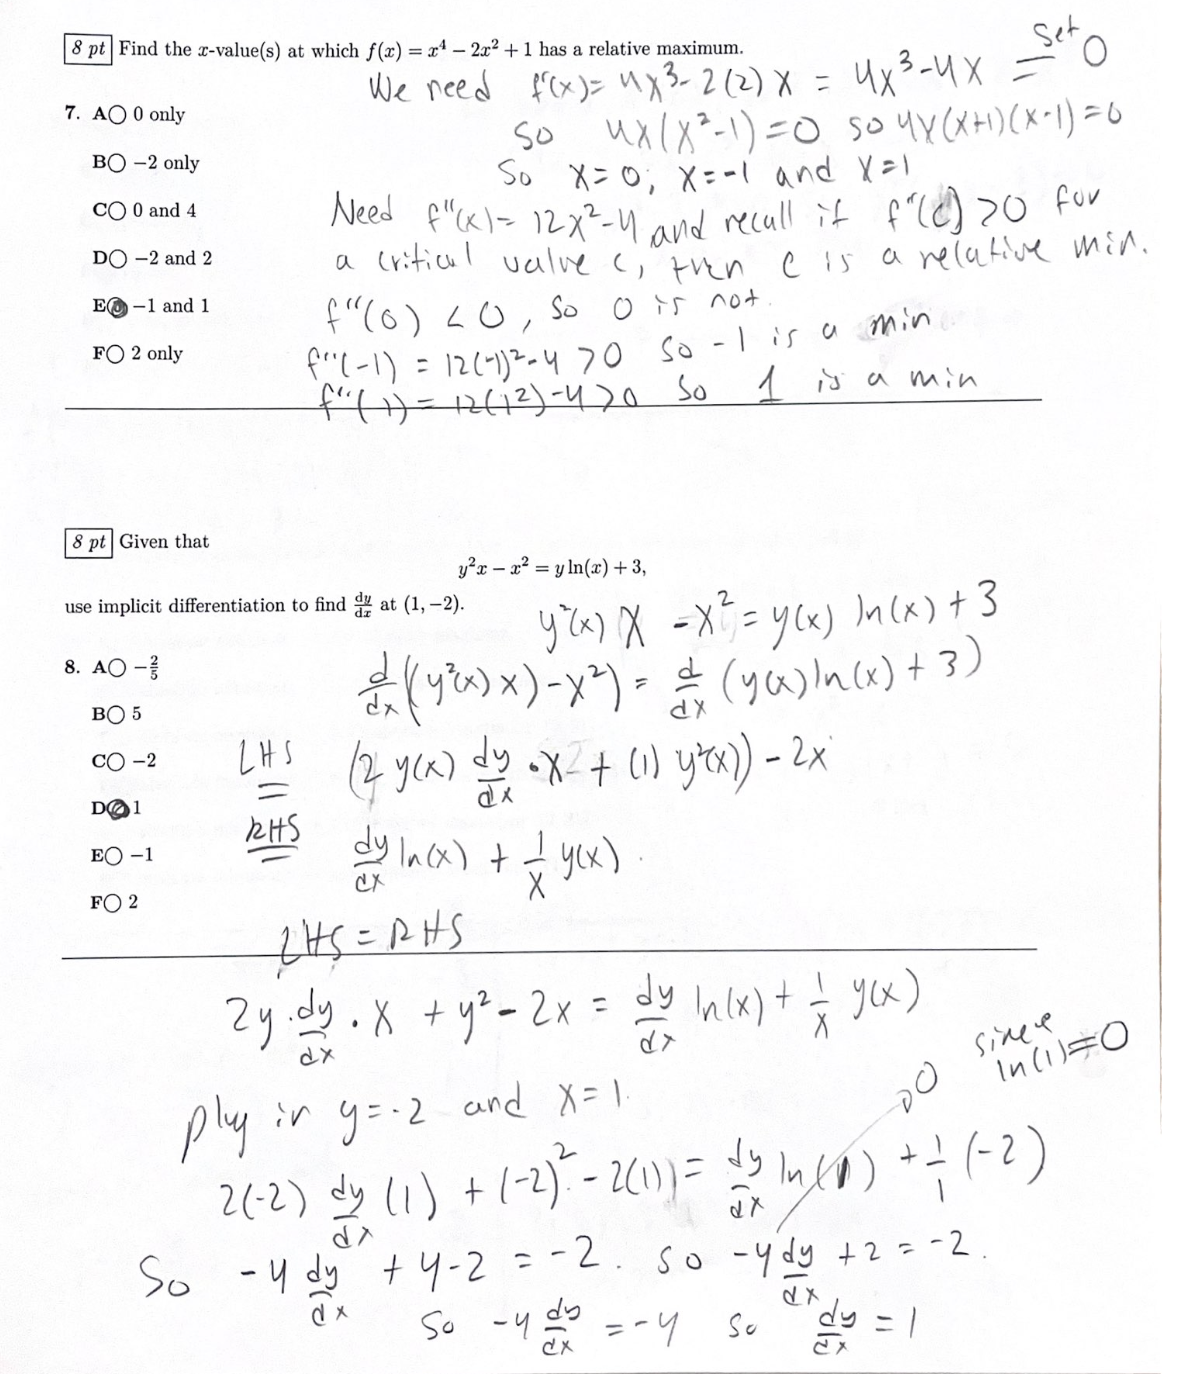 8 pt Find the x-value(s) at which f(x) = x⁴ − 2x² + 1 has a relative maximum.
We need f'(x) = 4x³ - 2(2)x = 4x³-4x set = 0
7. A○ 0 only
so 4x(x²-1)=0 so 4x(x+1)(x-1)=0
B○ −2 only
So x=0, x=-1 and x=1
C○ 0 and 4
Need f''(x)= 12x²-4 and recall if f''(c) >0 for
D○ −2 and 2
a critical value c, then c is a relative min.
E● −1 and 1
f''(0) <0, so 0 is not.
F○ 2 only
f''(-1) = 12(-1)²-4 >0 so -1 is a min
f''(1) = 12(1²)-4>0 so 1 is a min
8 pt Given that
y²x − x² = y ln(x) + 3,
use implicit differentiation to find dy/dx at (1, −2).
y²(x) x -x² = y(x) ln(x) + 3
8. A○ −2/5
d/dx ((y²(x) x)-x²) = d/dx (y(x)ln(x) + 3)
B○ 5
C○ −2
LHS = (2 y(x) dy/dx · x + (1) y²(x)) - 2x
D● 1
RHS = dy/dx ln(x) + 1/x y(x).
E○ −1
F○ 2
LHS = RHS
2y · dy/dx · x + y² - 2x = dy/dx ln(x) + 1/x y(x)
plug in y=-2 and x=1.
0 since ln(1)=0
2(-2) dy/dx (1) + (-2)² - 2(1) = dy/dx ln(1) + 1/1 (-2)
So -4 dy/dx + 4-2 = -2. so -4 dy/dx + 2 = -2.
So -4 dy/dx = -4 so dy/dx = 1